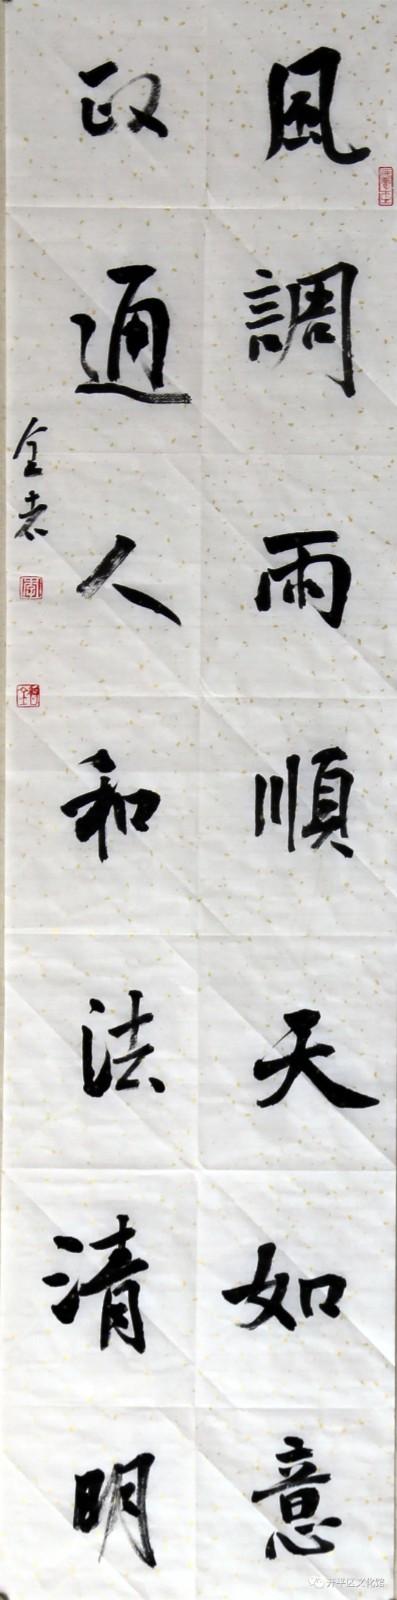 風調雨順天如意
政通人和法清明
全志
开平区文化馆